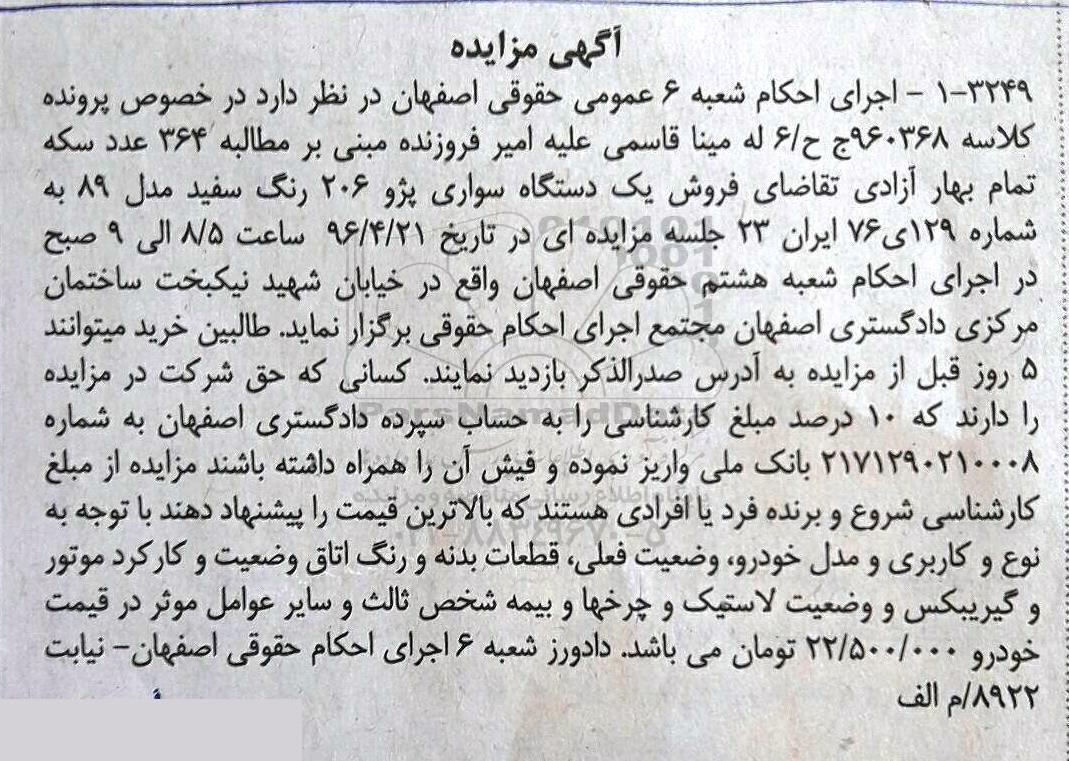 آگهی مزایده
۱-۳۲۴۹ - اجرای احکام شعبه ۶ عمومی حقوقی اصفهان در نظر دارد در خصوص پرونده
کلاسه ۹۶۰۳۶۸ج ح/۶ له مینا قاسمی علیه امیر فروزنده مبنی بر مطالبه ۳۶۴ عدد سکه
تمام بهار آزادی تقاضای فروش یک دستگاه سواری پژو ۲۰۶ رنگ سفید مدل ۸۹ به
شماره ۱۲۹ی۷۶ ایران ۲۳ جلسه مزایده ای در تاریخ ۹۶/۴/۲۱ ساعت ۸/۵ الی ۹ صبح
در اجرای احکام شعبه هشتم حقوقی اصفهان واقع در خیابان شهید نیکبخت ساختمان
مرکزی دادگستری اصفهان مجتمع اجرای احکام حقوقی برگزار نماید. طالبین خرید میتوانند
۵ روز قبل از مزایده به آدرس صدرالذکر بازدید نمایند. کسانی که حق شرکت در مزایده
را دارند که ۱۰ درصد مبلغ کارشناسی را به حساب سپرده دادگستری اصفهان به شماره
۲۱۷۱۲۹۰۲۱۰۰۰۸ بانک ملی واریز نموده و فیش آن را همراه داشته باشند مزایده از مبلغ
کارشناسی شروع و برنده فرد یا افرادی هستند که بالاترین قیمت را پیشنهاد دهند با توجه به
نوع و کاربری و مدل خودرو، وضعیت فعلی، قطعات بدنه و رنگ اتاق وضعیت و کارکرد موتور
و گیربیکس و وضعیت لاستیک و چرخها و بیمه شخص ثالث و سایر عوامل موثر در قیمت
خودرو ۲۲/۵۰۰/۰۰۰ تومان می باشد. دادورز شعبه ۶ اجرای احکام حقوقی اصفهان- نیابت
۸۹۲۲/م الف
ParsNamadData
پایگاه اطلاع رسانی مناقصه و مزایده
۰۲۱-۸۸۳۴۹۶۷۰-۵